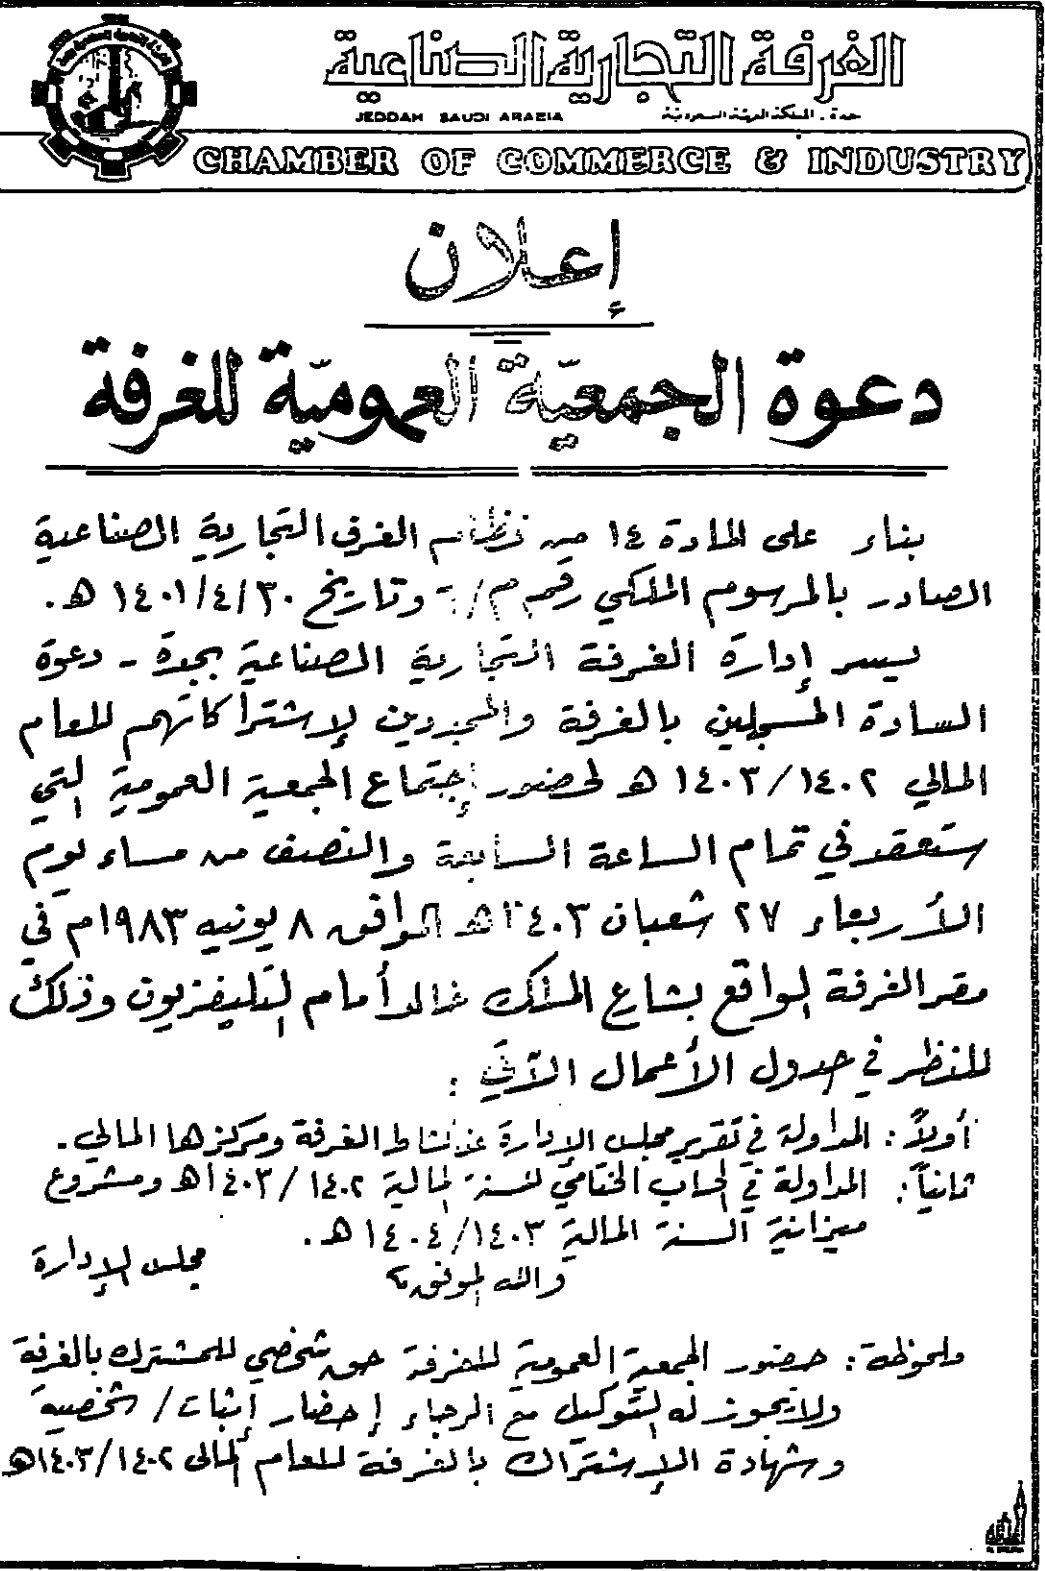 الغرفة التجارية الصناعية
JEDDAH SAUDI ARABIA
جدة - المملكة العربية السعودية
CHAMBER OF COMMERCE & INDUSTRY
إعلان
دعوة الجمعيّة العموميّة للغرفة
بناء على المادة ١٤ من نظام الغرف التجارية الصناعية
الصادر بالمرسوم الملكي رقم م/ وتاريخ ١٤٠١/٤/٣٠ هـ.
يسر إدارة الغرفة التجارية الصناعية بجدة - دعوة
السادة المسجلين بالغرفة والمجددين لإشتراكاتهم للعام
المالي ١٤٠٣/١٤٠٢ هـ لحضور إجتماع الجمعية العمومية التي
ستعقد في تمام الساعة السابعة والنصف من مساء يوم
الأربعاء ٢٧ شعبان ١٤٠٣هـ الموافق ٨ يونيه ١٩٨٣م في
مقر الغرفة الواقع بشارع الملك خالد أمام التليفزيون وذلك
للنظر في جدول الأعمال الآتي :
أولاً : المداولة في تقرير مجلس الإدارة عن نشاط الغرفة ومركزها المالي.
ثانياً : المداولة في الحساب الختامي للسنة المالية ١٤٠٣/١٤٠٢هـ ومشروع
ميزانية السنة المالية ١٤٠٤/١٤٠٣ هـ.
والله الموفق
مجلس الإدارة
ملحوظة : حضور الجمعية العمومية للغرفة حق شخصي للمشترك بالغرفة
ولا يجوز له التوكيل مع الرجاء إحضار إثبات / شخصية
وشهادة الإشتراك بالغرفة للعام المالى ١٤٠٣/١٤٠٢هـ